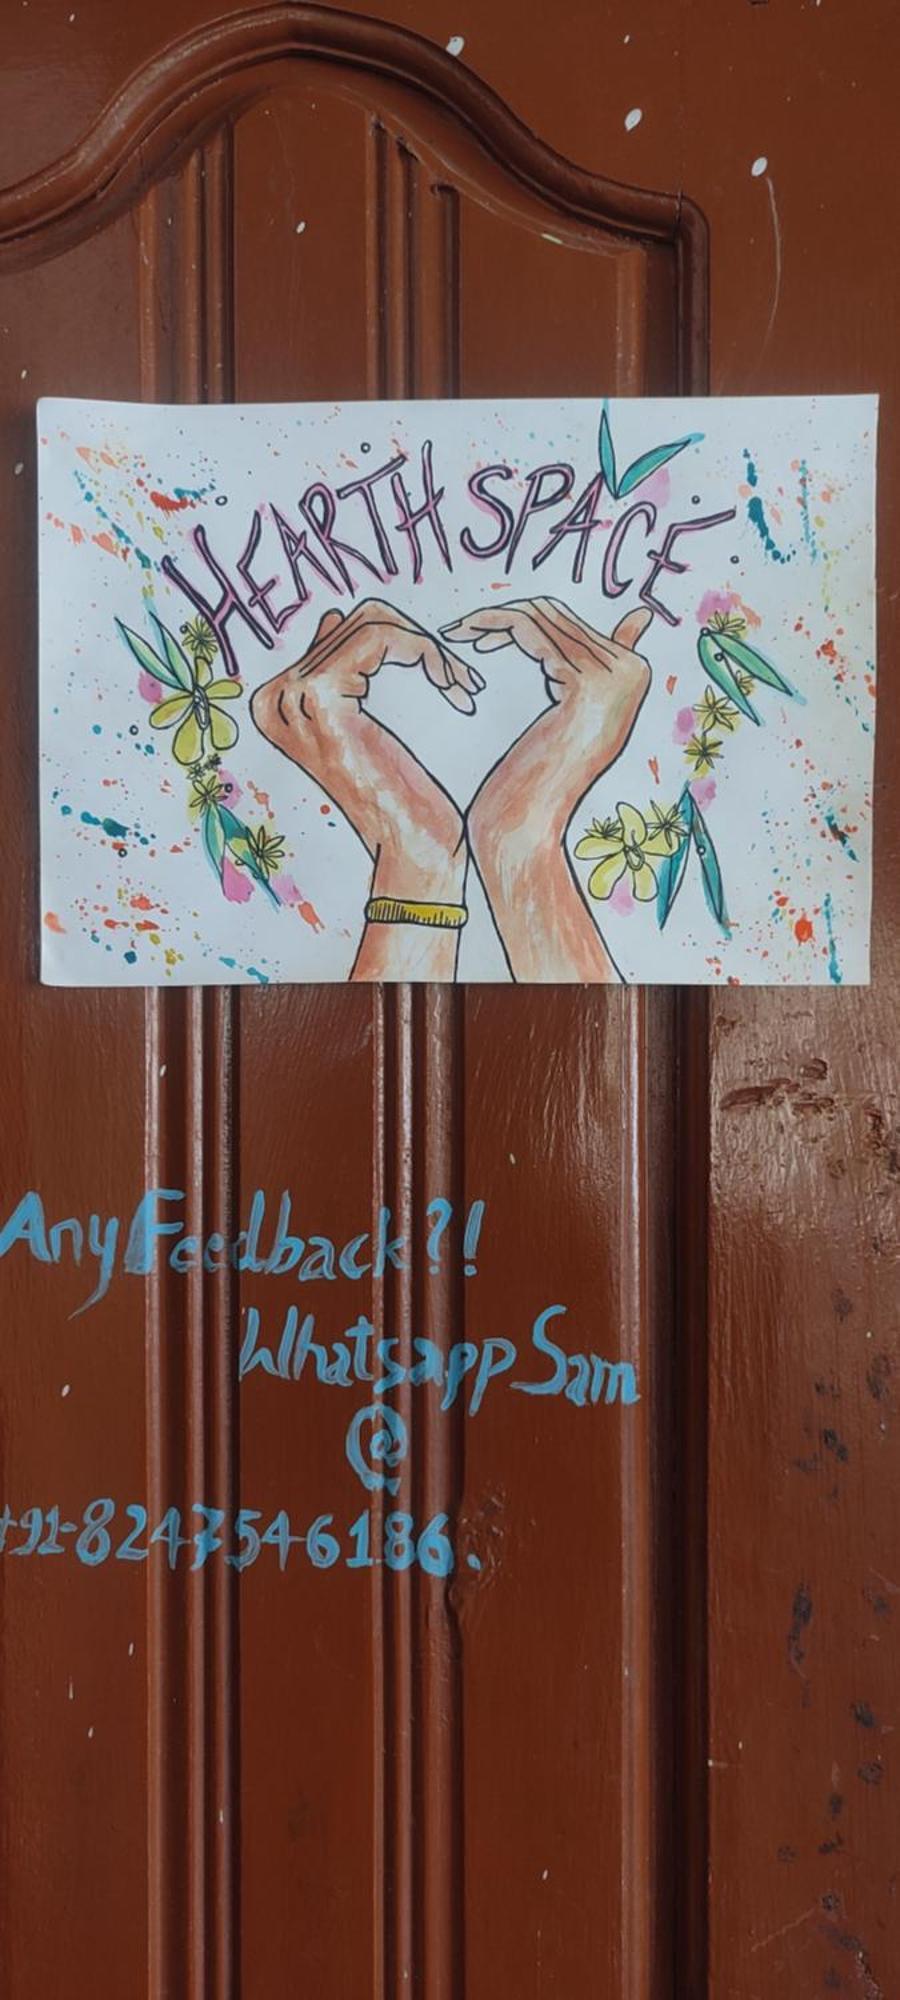 HEARTH SPACE
Any Feedback?!
Whatsapp Sam
@
+91-8247546186.